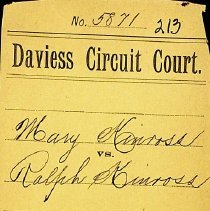 No. 5871 213
Daviess Circuit Court.
Mary Kinross
vs.
Ralph Kinross